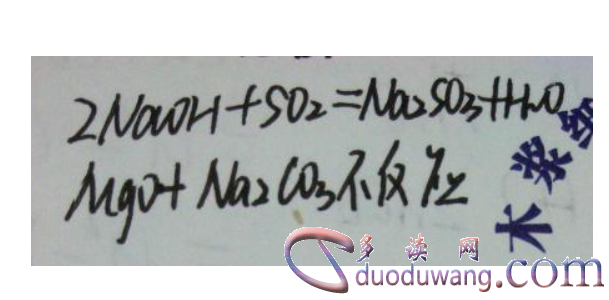 2NaOH+SO₂=Na₂SO₃+H₂O
MgO+Na₂CO₃不反应
木浆
多读网
duoduwang.com